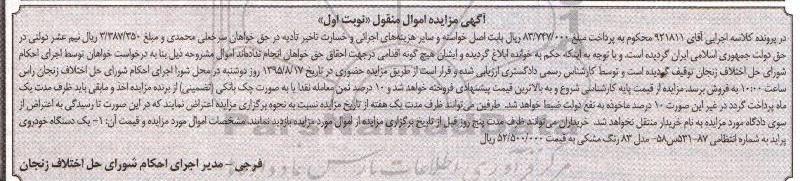 آگهی مزایده اموال منقول «نوبت اول»
در پرونده کلاسه اجرایی آقای ۹۲۱۸۱۱ محکوم به پرداخت مبلغ ۸۳/۷۴۷/۰۰۰ ریال بابت اصل خواسته و سایر هزینه‌های اجرائی و خسارت تاخیر تأدیه در حق خواهان سرخعلی محمدی و مبلغ ۳/۳۸۷/۳۵۰ ریال نیم عشر دولتی در
حق دولت جمهوری اسلامی ایران گردیده است. و با توجه به اینکه حکم به خوانده ابلاغ گردیده و ایشان هیچ گونه اقدامی درجهت احقاق حق خواهان انجام نداده‌اند اموال مشروحه ذیل بنا به درخواست خواهان توسط اجرای احکام
شورای حل اختلاف زنجان توقیف گردیده است و توسط کارشناس رسمی دادگستری ارزیابی شده و قرار است از طریق مزایده حضوری در تاریخ ۱۳۹۵/۸/۱۷ روز دوشنبه در محل شورا اجرای احکام شورای حل اختلاف زنجان راس
ساعت ۱۰:۰۰ به فروش برسد. مزایده از قیمت پایه کارشناسی شروع و به بالاترین قیمت پیشنهادی فروخته خواهد شد و ۱۰ درصد ثمن معامله نقدا یا به صورت چک بانکی (تضمینی) از برنده مزایده اخذ و مابقی باید ظرف مدت یک
ماه پرداخت گردد در غیر این صورت ۱۰ درصد ماخوذه به نفع دولت ضبط خواهد شد. طرفین می‌توانند ظرف مدت یک هفته از تاریخ مزایده نسبت به نحوه برگزاری مزایده اعتراض نمایند که در این صورت تا رسیدگی به اعتراض از
سوی دادگاه مورد مزایده به نام خریدار منتقل نخواهد شد. خریداران می‌توانند ظرف مدت پنج روز قبل از تاریخ برگزاری مزایده از اموال مورد مزایده بازدید نمایند. مشخصات اموال مورد مزایده و قیمت آن: ۱- یک دستگاه خودروی
پراید به شماره انتظامی ۸۷-۵۳۱س۵۸- مدل ۸۳ رنگ مشکی به قیمت ۵۲/۵۰۰/۰۰۰ ریال
فرجی- مدیر اجرای احکام شورای حل اختلاف زنجان